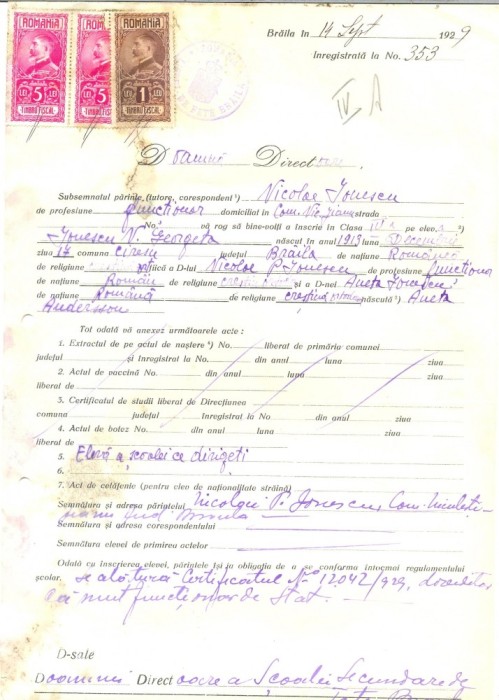 ROMANIA ROMANIA ROMANIA
5 LEI 5 LEI 1 LEU
TIMBRU FISCAL TIMBRU FISCAL TIMBRU FISCAL
Brăila în 14 Sept 1929
Inregistrată la No. 353
IV A
Doamnă Directoare,
Subsemnatul părinte, (tutore, corespondent) Nicolae Ionescu
de profesiune funcționar domiciliat în Com. strada
No. vă rog să bine-voiți a înscrie în Clasa pe eleva
Ionescu N. Georgeta născut în anul 1913 luna Decembrie
ziua 17 comuna Cireșu județul Brăila de națiune Română
de religiune fiică a D-lui Nicolae P. Ionescu de profesiune funcționar
de națiune Română de religiune creștină și a D-nei Aneta Ionescu
de națiune Română de religiune creștină născută Aneta
Andersson
Tot odată vă anexez următoarele acte :
1. Extractul de pe actul de naștere No. liberat de primăria comunei
județul și înregistrat la No. din anul luna ziua
2. Actul de vaccină No. din anul luna ziua
liberat de
3. Certificatul de studii liberat de Direcțiunea
comuna județul Inregistrat la No din anul ziua
4. Actul de botez No. din anul luna ziua
liberat de
5. Elevă a școalei ce dirigeți
6.
7. Act de cetățenie (pentru eleve de naționalitate străină)
Semnătura și adresa părintelui Nicolae P. Ionescu, Com.
Semnătura și adresa corespondentului
Semnătura elevei de primirea actelor
Odată cu înscrierea elevei, părintele își ia obligația de a se conforma întocmai regulamentului
școlar. Se alătură Certificatul No 12042/929, doveditor
că sunt funcționar de Stat.
D-sale
Doamnei Directoare a Școalei Secundare de